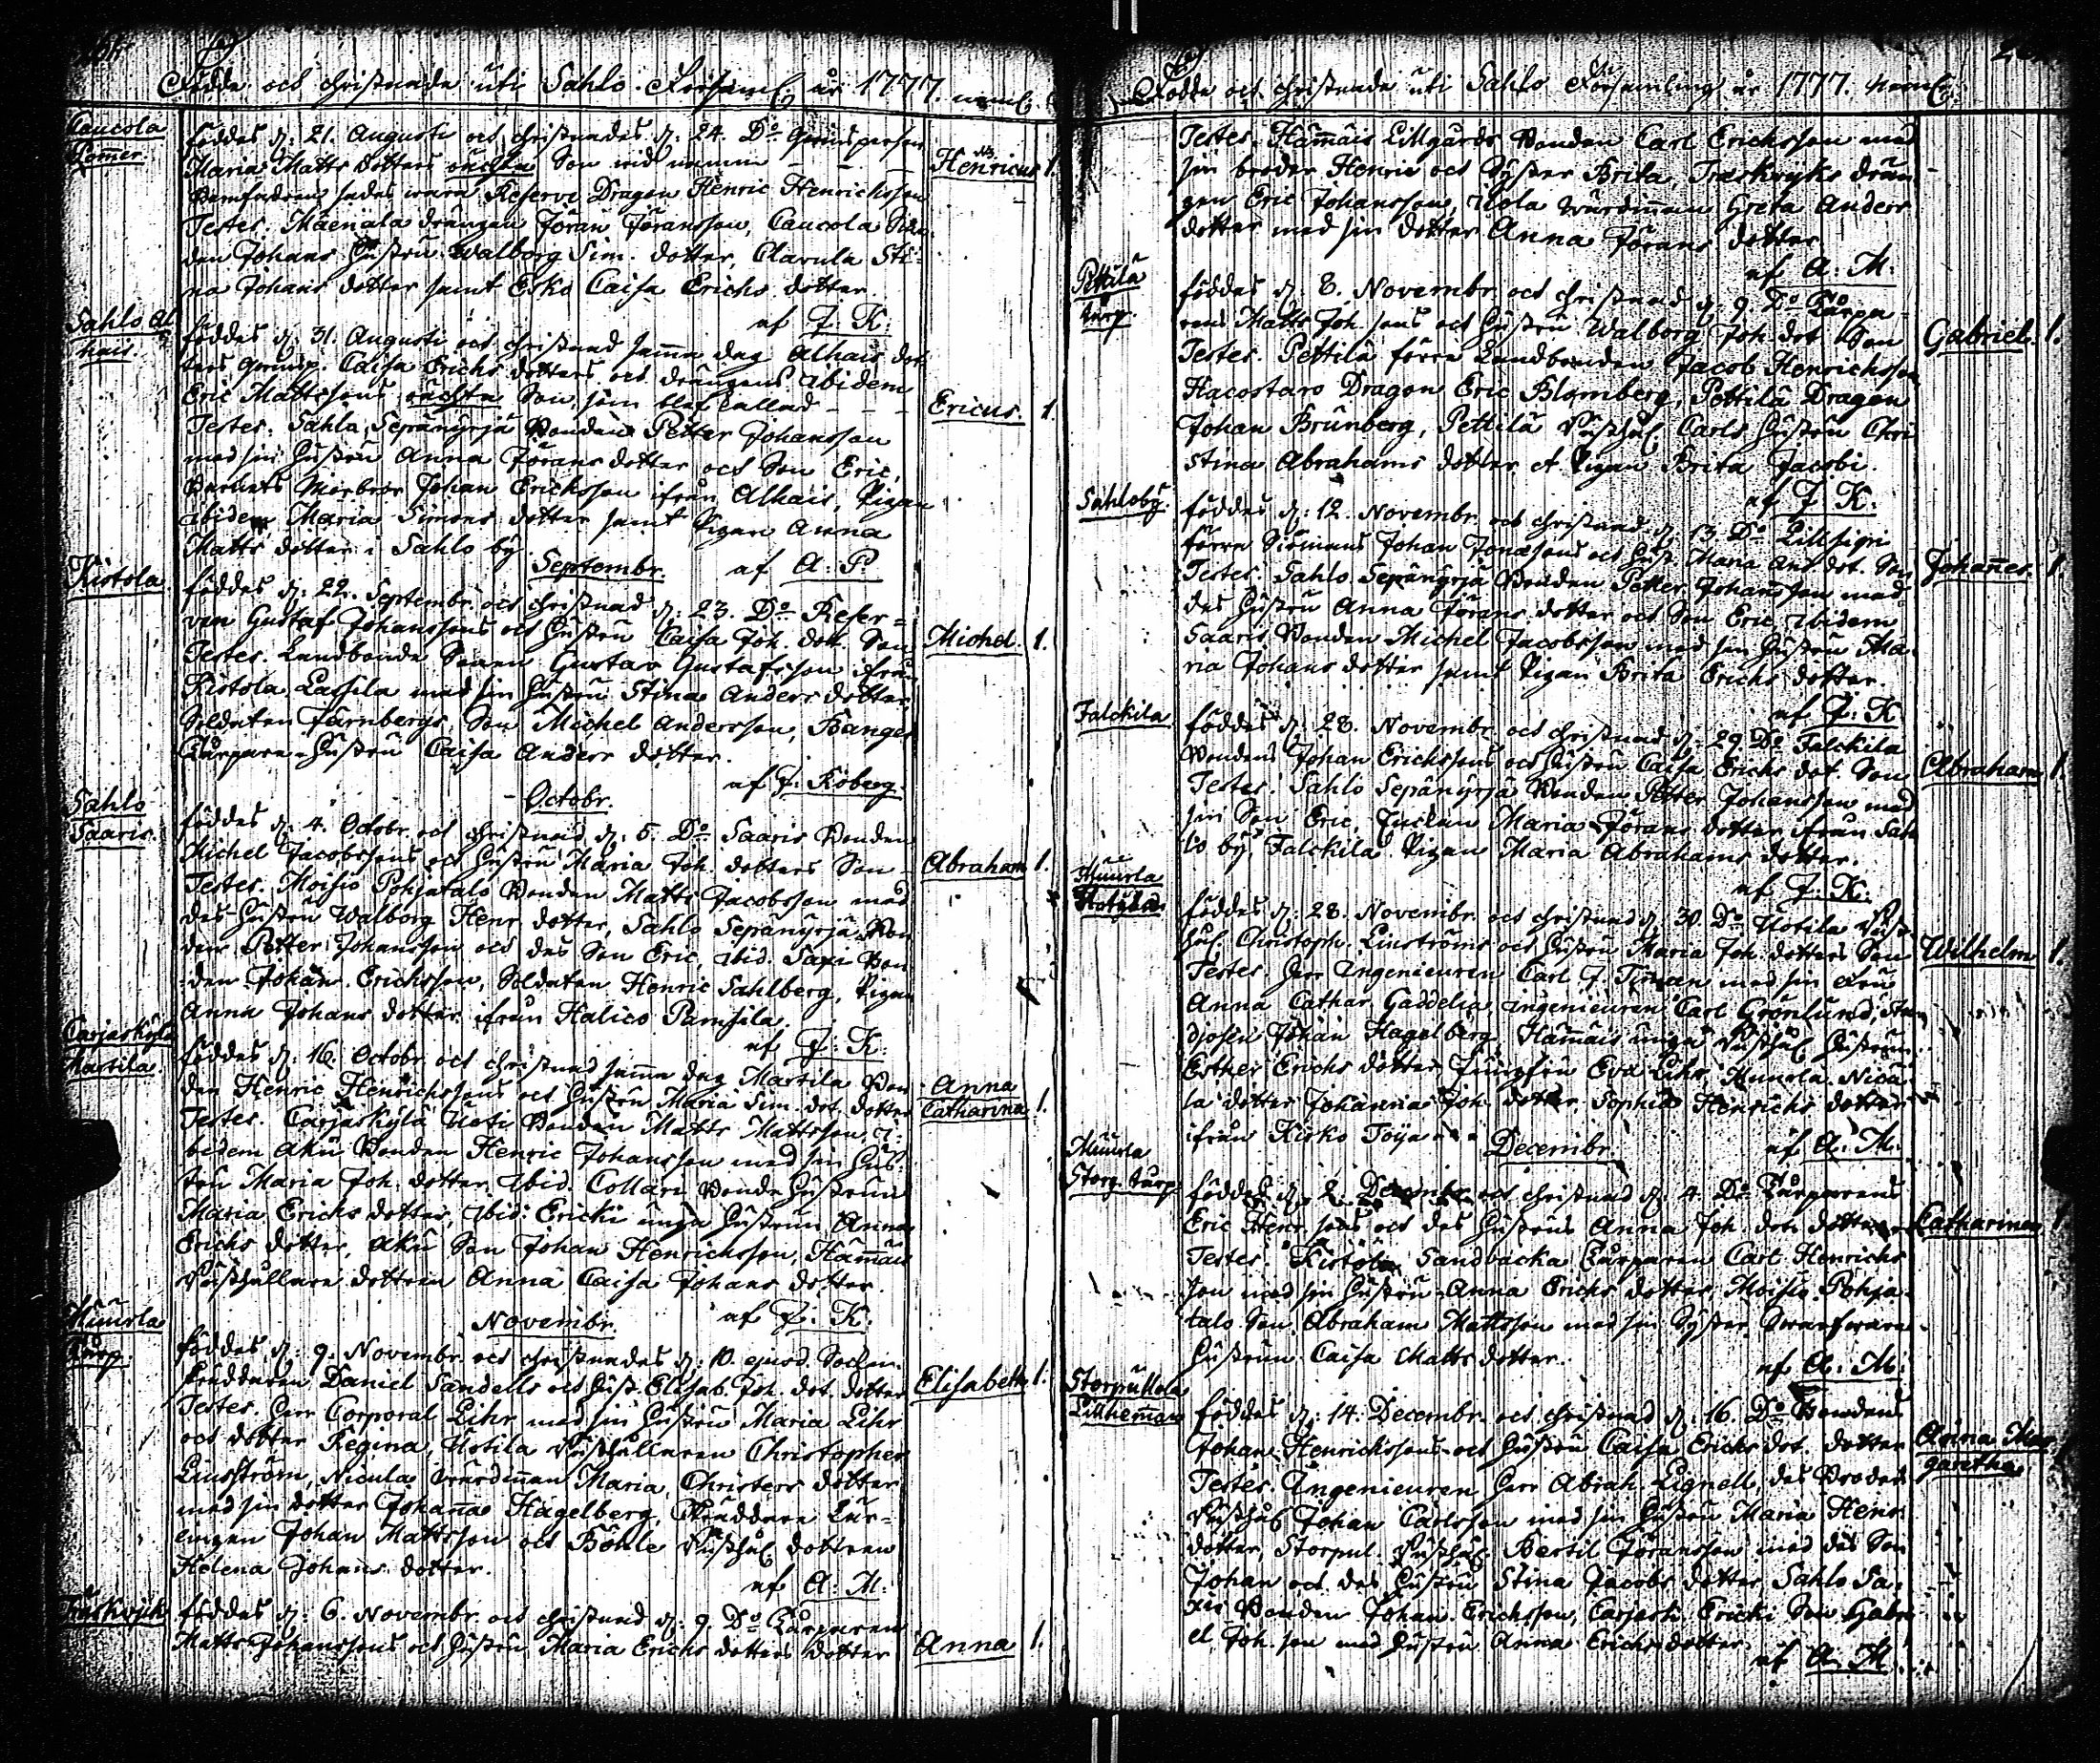 Födde och christnade uti Sahlo Församl. år 1777. neml.
Caucola
Pomer.
föddes d: 21. Augusti och christnades d: 24. Do
Maria Matts dotters oächta Son vid namn
Henricus 1.
Reserve Dragon Henric Henrichsson
Testes. Mäenala drängen Jöran Jöransson, Caucola
den Johans Hustru Walborg Sim. dotter, Clavula Sti-
na Johans dotter samt Esko Caisa Erichs dotter.
af J. K:
Sahlo Al
hais.
föddes d: 31. Augusti och christnad samma dag Alhais dot-
ters Caisa Erichs dotters och drängens ibidem
Eric Mattssons oächta Son, som blef kallad
Ericus. 1.
Testes. Sahlo Sepänyrjä Bonden Petter Johansson
med sin Hustru Anna Jörans dotter och Son Eric,
Barnets Morbror Johan Erichsson ifrån Alhais, Pigan
ibidem Maria Simons dotter samt Pigan Anna
Matts dotter i Sahlo by.
af A: P:
Septembr.
Kistola
föddes d: 22. Septembr. och christnad d: 23. Do Reser-
ven Gustaf Johanssons och Hustru Caisa Joh. dott. Son
Michel. 1.
Testes. Landbonde Sonen Gustav Gustafsson ifrån
Kistola Lassila med sin Hustru Stina Anders dotter,
Soldaten Färnbergs Son Michel Andersson,
Hustru Caisa Anders dotter.
af J. Koberg.
Octobr.
Sahlo
Saaris.
föddes d: 4. Octobr. och christnad d: 5. Do Saaris Bonden
Michel Jacobssons och Hustru Maria Joh. dotters Son
Abraham 1.
Testes. Moisio Pohjatalo Bonden Matts Jacobsson med
des Hustru Walborg Henr. dotter, Sahlo Sepänyrjä Bon-
den Petter Johansson och des Son Eric, ibid. Saxi Bon-
den Johan Erichsson, Soldaten Henric Sahlberg, Pigan
Anna Johans dotter ifrån Halico Pamsila.
af J: K:
Carjaskylä
Martila.
föddes d: 16. Octobr. och christnad samma dag Martila Bon-
den Henric Henrichssons och Hustru Maria Sim. dot. dotter
Anna
Catharina 1.
Testes. Carjaskylä Uoti Bonden Matts Mattsson, i-
bidem Aku Bonden Henric Johansson med sin Hus-
tru Maria Joh. dotter, ibid. Collari Bonde Hustrun
Maria Erichs dotter, ibid: Ericki unga Hustrun Anna
Erichs dotter, Aku Son Johan Henrichsson, Hämäis
dottren Anna Caisa Johans dotter.
af J. K:
Novembr.
Muurla
torp.
föddes d: 9. Novembr. och christnades d: 10. ejusd. Sockn-
skräddaren Daniel Sandells och Hust. Elisab. Joh. dot. dotter
Elisabeth 1.
Testes. Herr Corporal Lihr med sin Hustru Maria Lihr
och dotter Regina, Uotila Christopher
Linström, Nicula Maria Christers dotter
med sin dotter Johanna Hagelberg, Skräddare Lär-
lingen Johan Mattsson och Böhle dottren
Helena Johans dotter.
af A: M:
föddes d: 6. Novembr. och christnad d: 9. Do Torparen
Matts Johanssons och Hustru Maria Erichs dotters dotter
Anna 1.
Födde och christnade uti Sahlo Församling år 1777. neml.
Testes. Hämäis Lillgårds Bonden Carl Erichsson med
sin broder Henric och Syster Brita, Träskvyks drän-
gen Eric Johansson, Greta Anders
dotter med sin dotter Anna Jörans dotter.
af A: M:
Pettilä
torp.
föddes d: 8. Novembr. och christnad d: 9. Do Torpa-
rens Matts Joh. sons och Hustru Walborg Joh. dot. Son
Gabriel. 1.
Testes. Pettilä förra Landbonden Jacob Henrichsson,
Hacostaro Dragon Eric Blomberg, Pettilä Dragon
Johan Brunberg, Pettilä Carls Hustru Chri-
stina Abrahams dotter et Pigan Brita Jacobi.
af J: K:
Sahloby.
föddes d: 12. Novembr. och christnad d: 13. Do
förra Johan Jonæsons och Hust. Maria And. dot. Son
Johannes. 1.
Testes. Sahlo Sepänyrjä Bonden Petter Johansson med
des Hustru Anna Jörans dotter och Son Eric, ibidem
Saaris Bonden Michel Jacobsson med sin Hustru Ma-
ria Johans dotter samt Pigan Brita Erichs dotter.
af J: K
Falckila
föddes d: 28. Novembr. och christnad d: 29. Do Falckila
Bondens Johan Erichssons och Hustru Caisa Erichs dot. Son
Abraham 1.
Testes. Sahlo Sepänyrjä Bonden Petter Johansson med
sin Son Eric, Enckan Maria Jörans dotter ifrån Sah-
lo by, Falckila Pigan Maria Abrahams dotter.
af J. K:
Muurla
föddes d: 28. Novembr. och christnad d: 30. Do Uotila
Christoph. Linströms och Hustru Maria Joh. dotters Son
Wilhelm 1.
Testes. Herr Ingenieuren Carl J. Timan med sin Fru
Anna Cathar. Gaddelia, Ingenieuren Carl Grönlund,
Johan Hagelberg, Hämäis unga Hustrun
Esther Erichs dotter, Jungfru Eva Lihr, Muurla Nicu-
la dotter Johanna Joh. dotter, Sophia Henrichs dotter
ifrån Kisko Toija
af A: M:
Decembr.
Muurla
Storg. torp
föddes d: 2. Decembr. och christnad d: 4. Do Torparens
Eric Henr. sons och des Hustrus Anna Joh. dott. dotter
Catharina 1
Testes. Kistola Sandbacka Torparen Carl Henrichs-
son med sin Hustru Anna Erichs dotter, Moisio Pohja-
talo Son Abraham Mattsson med sin Syster
Hustrun Caisa Matts dotter.
af A: M:
Storpullola
Lillhemman
föddes d: 14. Decembr. och christnad d: 16. Do Bondens
Johan Henrichssons och Hustru Caisa Erichs dot. dotter
Anna Mar-
garetha.
Testes. Ingenieuren Herr Abrah. Lignell, des Broder
Johan Carlsson med sin Hustru Maria Henr.
dotter, Storpul. Bertil Jöransson med des Son
Johan och des Hustru Stina Jacobs dotter, Sahlo Sa-
xis Bonden Johan Erichsson, Carjask. Ericki Son Gabri-
el Joh. son med Hustru Anna Erichs dotter.
af A. M.